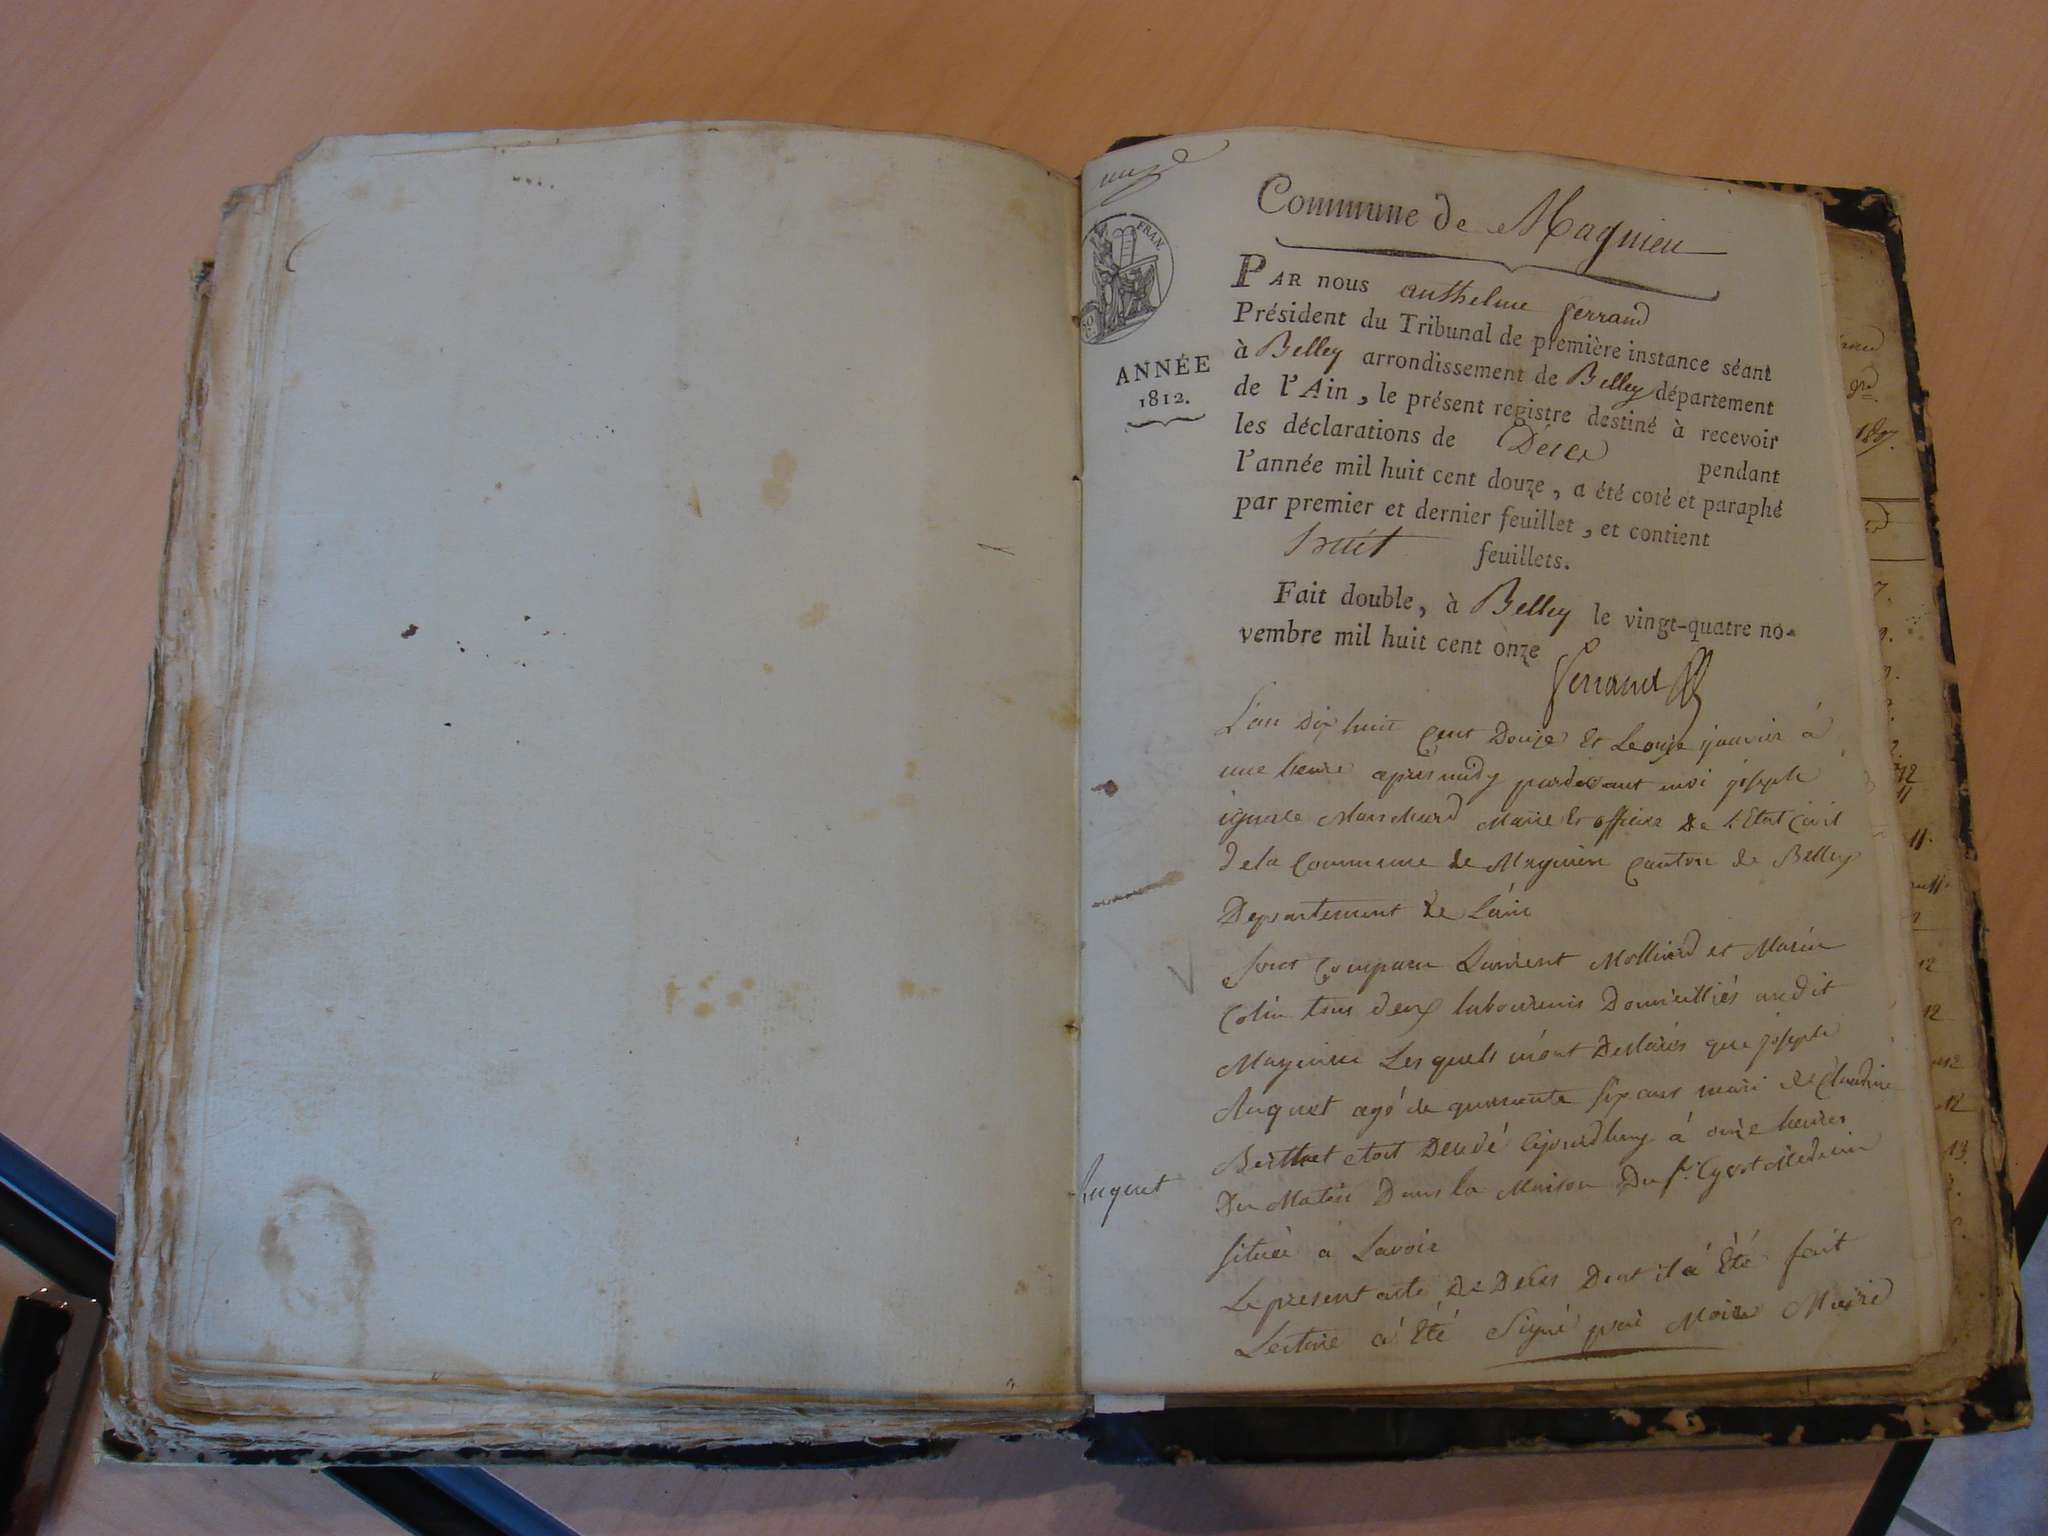 Commune de Magnieu
FRAN
PAR nous anthelme ferrand
Président du Tribunal de première instance séant
à Belley arrondissement de Belley département
de l'Ain, le présent registre destiné à recevoir
les déclarations de Décès pendant
l'année mil huit cent douze, a été coté et paraphé
par premier et dernier feuillet, et contient
huit feuillets.
ANNÉE
1812.
Fait double, à Belley le vingt-quatre no-
vembre mil huit cent onze
ferrand
L'an dix huit Cent Douze Et Le onze janvier à
une heure après midy pardevant moi joseph
ignace Marchand Maire Et officier De L'Etat Civil
De la Commune de Magnieu Canton de Belley
Departement de L'ain
Sont Comparu Laurent Mollard et Marin
Colin tous deux laboureurs Domicilliés audit
Magnieu Lesquels m'ont Déclarés que joseph
Huguet agé de quarante six ans mari de Claudine
Berthet etoit Décédé Ejourdhuy à onze heures
Du Matin Dans la Maison Du Sr. Médecin
Huguet
située à Lavoir
Le present acte De Décès Dont il à Eté fait
Lecture à Eté Signé par Moi Maire